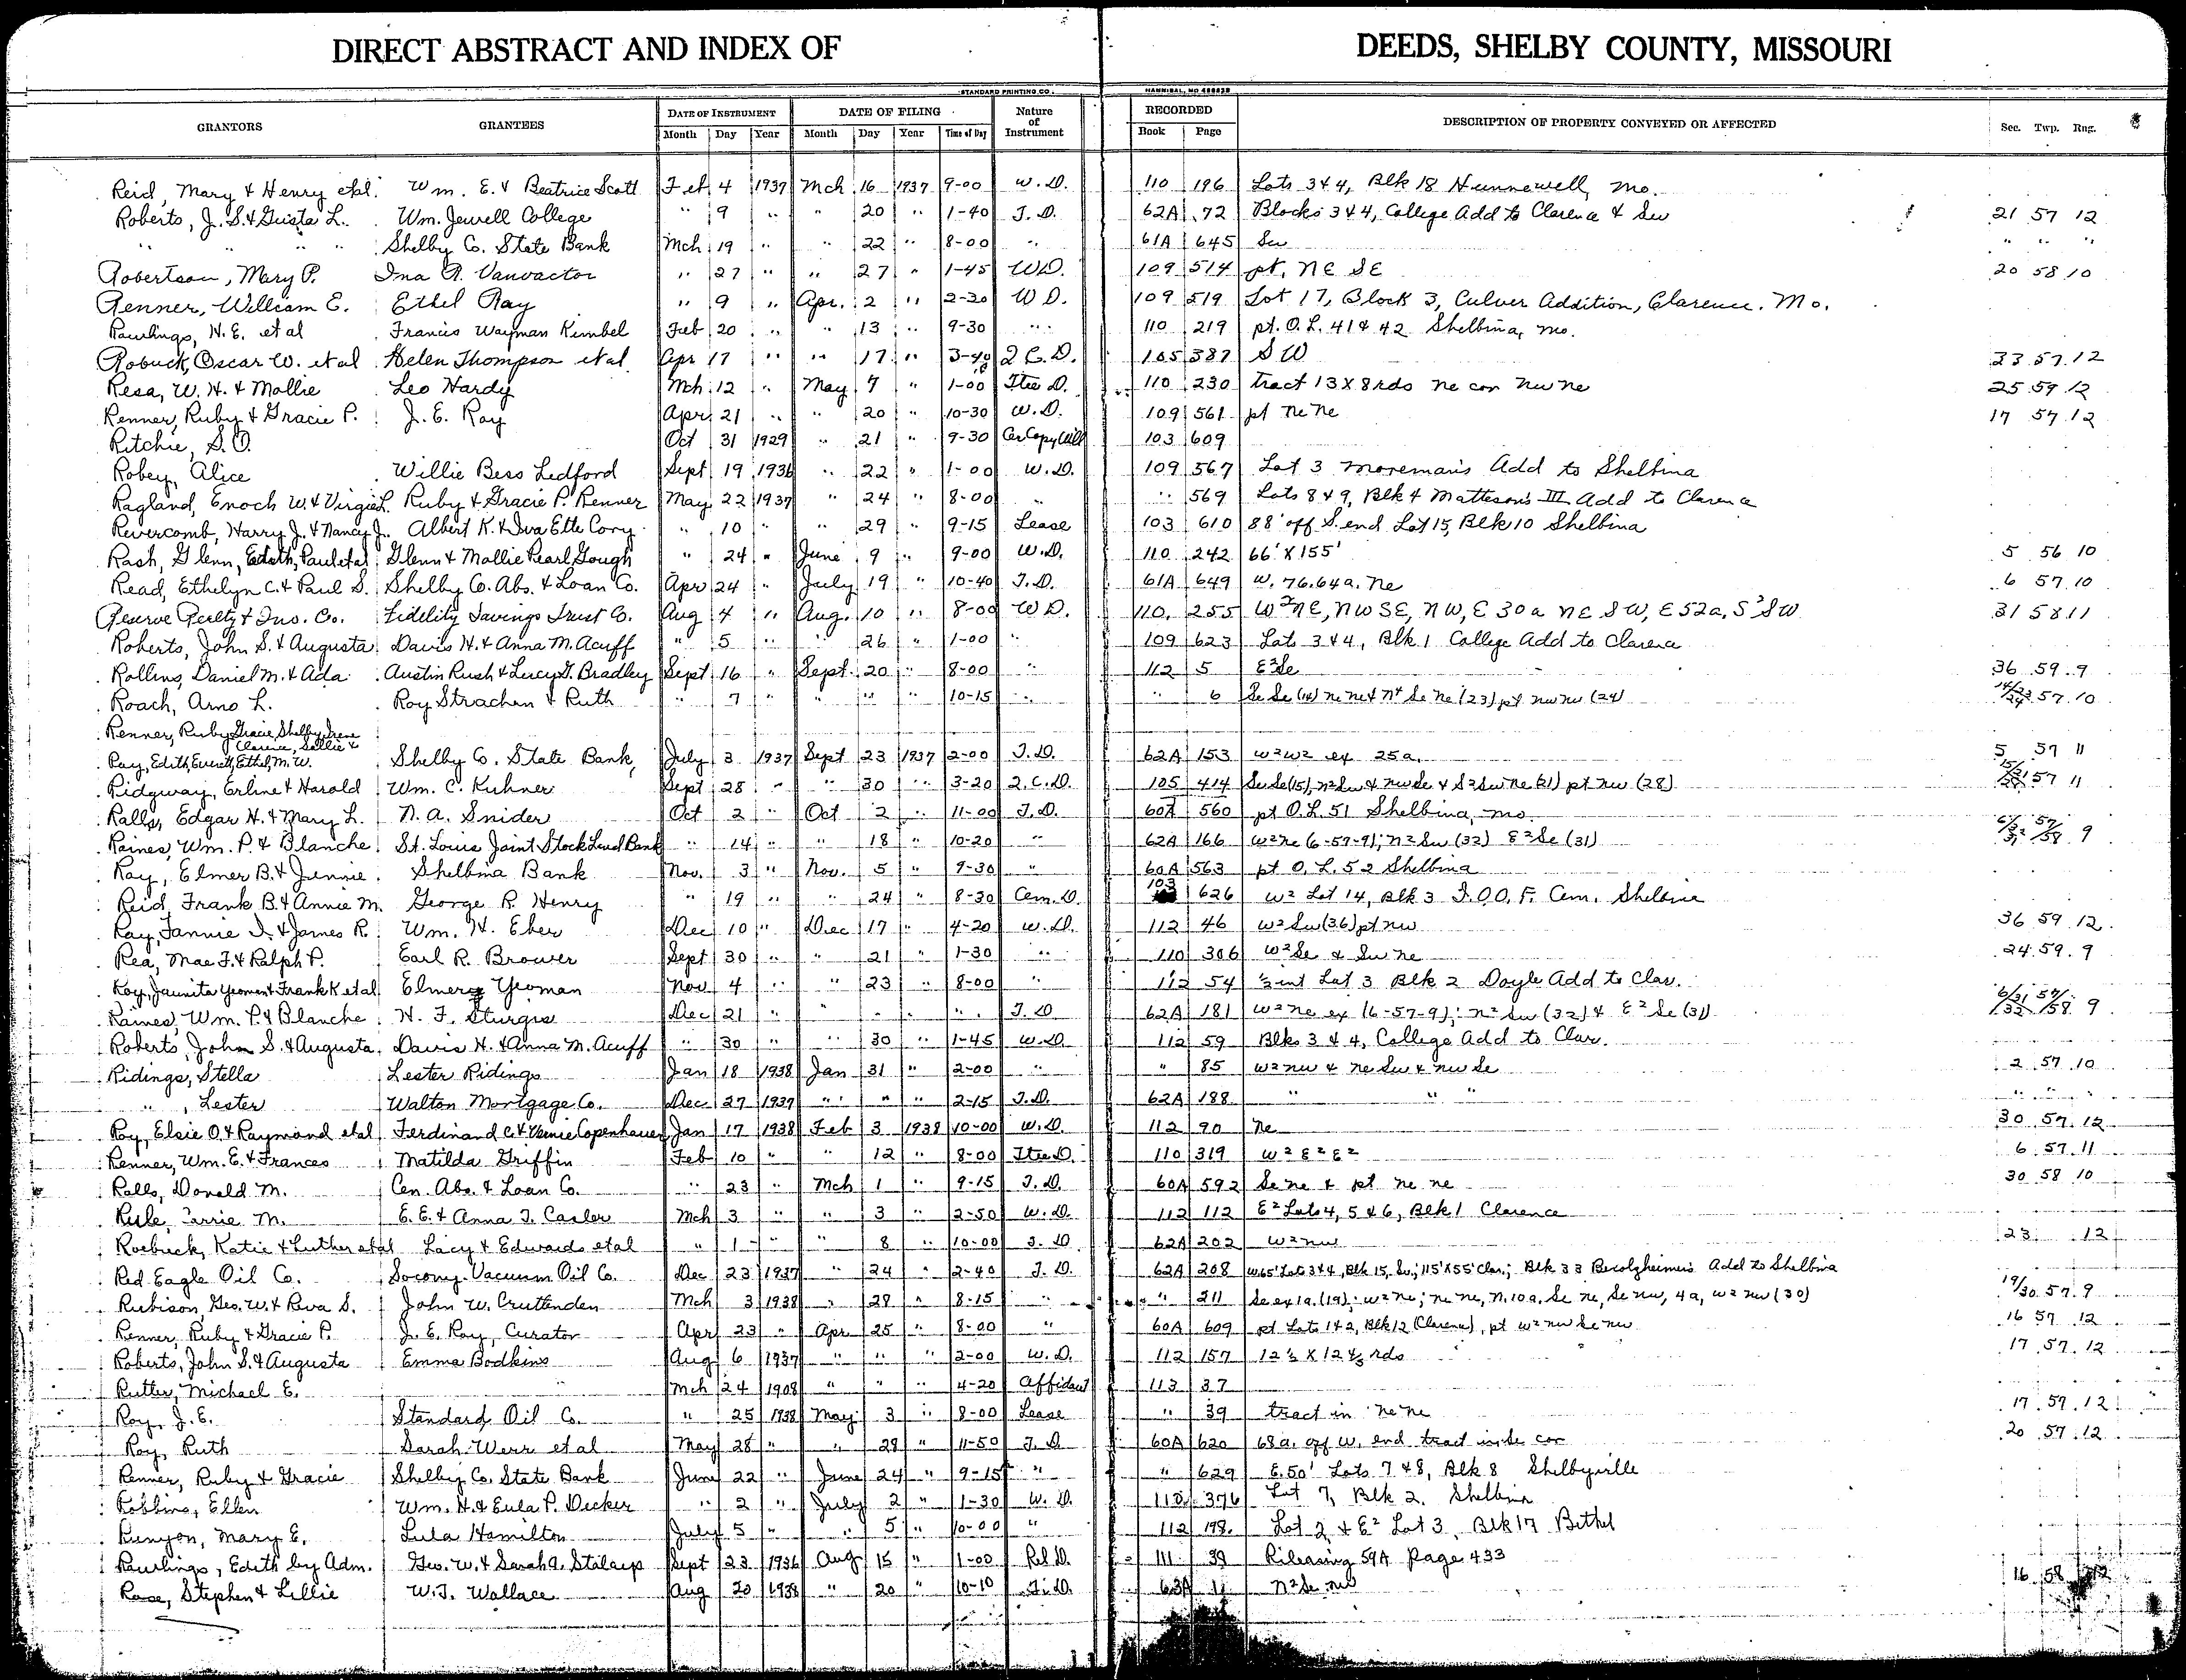 DIRECT ABSTRACT AND INDEX OF DEEDS, SHELBY COUNTY, MISSOURI
STANDARD PRINTING CO. HANNIBAL, MO
GRANTORS GRANTEES DATE OF INSTRUMENT DATE OF FILING Nature of Instrument RECORDED DESCRIPTION OF PROPERTY CONVEYED OR AFFECTED Sec. Twp. Rng.
Month Day Year Month Day Year Time of Day Book Page
Reid, Mary & Henry etal. Wm. E. & Beatrice Scott Feb 4 1937 Mch 16 1937 9-00 W.D. 110 196 Lots 3 & 4, Blk 18 Hunnewell, Mo.
Roberts, J. S. & Gusta L. Wm. Jewell College " 9 " " 20 " 1-40 T.D. 62A 72 Blocks 3 & 4, College Add to Clarence & Sw 21 57 12
" " " " Shelby Co. State Bank Mch 19 " " 22 " 8-00 " 61A 645 Sw " " "
Robertson, Mary P. Ina R. Vanvactor " 27 " " 27 " 1-45 WD. 109 514 pt. NE SE 20 58 10
Renner, William E. Ethel Ray " 9 " Apr. 2 " 2-30 WD. 109 519 Lot 17, Block 3, Culver Addition, Clarence. Mo.
Rawlings, H. E. et al Francis Wayman Kimbel Feb 20 " " 13 " 9-30 " 110 219 pt. O.L. 41 & 42 Shelbina, Mo.
Robuck, Oscar W. et al Helen Thompson et al Apr 17 " " 17 " 3-40 Q.C.D. 105 387 SW 33 57 12
Resa, W. H. & Mollie Leo Hardy Mch 12 " May 7 " 1-00 Tte D. 110 230 tract 13 X 8 rds ne cor nw ne 25 59 12
Renner, Ruby & Gracie P. J. E. Roy Apr 21 " " 20 " 10-30 W.D. 109 561 pt ne ne 17 57 12
Ritchie, S. O. Oct 31 1929 " 21 " 9-30 Cer Copy Will 103 609
Robey, Alice Willie Bess Ledford Sept 19 1936 " 22 " 1-00 W.D. 109 567 Lot 3 Moreman's Add to Shelbina
Ragland, Enoch W. & Virgie L. Ruby & Gracie P. Renner May 22 1937 " 24 " 8-00 " " 569 Lots 8 & 9, Blk 4 Matteson's III Add to Clarence
Revercomb, Harry J. & Nancy J. Albert K. & Iva Etta Cory " 10 " " 29 " 9-15 Lease 103 610 88' off S. end Lot 15, Blk 10 Shelbina
Rash, Glenn, Edith, Paul etal Glenn & Mollie Pearl Gough " 24 " June 9 " 9-00 W.D. 110 242 66' X 155' 5 56 10
Read, Ethelyn C. & Paul S. Shelby Co. Abs. & Loan Co. Apr 24 " July 19 " 10-40 T.D. 61A 649 W. 76.64 a. ne 6 57 10
Reserve Realty & Ins. Co. Fidelity Savings Trust Co. Aug 4 " Aug. 10 " 8-00 WD. 110 255 W²NE, NW SE, NW, E 30a NE SW, E 52a, S²SW 31 58 11
Roberts, John S. & Augusta Davis H. & Anna M. Acuff " 5 " " 26 " 1-00 " 109 623 Lots 3 & 4, Blk 1 College Add to Clarence
Rollins, Daniel M. & Ada Austin Rush & Lucy G. Bradley Sept 16 " Sept. 20 " 8-00 " 112 5 E²Se 36 59 9
Roach, Arno L. Roy Strachan & Ruth " 7 " " " " 10-15 " " 6 Se Se (14) ne ne & n² Se ne (23) pt nw nw (24) 14/23/24 57 10
Renner, Ruby Gracie, Shelby, Irene
Clarence, Sallie &
Ray, Edith, Everett, Ethel, M. W. Shelby Co. State Bank, July 3 1937 Sept 23 1937 2-00 T.D. 62A 153 w²w² ex 25a. 5 57 11
Ridgway, Erline & Harold Wm. C. Kuhner Sept 28 " " 30 " 3-20 Q.C.D. 105 414 Sw Se (15), n² Sw & nw Se & S² Sw ne (21) pt nw (28) 57 11
Ralls, Edgar H. & Mary L. N. A. Snider Oct 2 " Oct 2 " 11-00 T.D. 60A 560 pt O.L. 51 Shelbina, Mo.
Raines, Wm. P. & Blanche St. Louis Joint Stock Land Bank " 14 " " 18 " 10-20 " 62A 166 w² ne (6-57-9); n² Sw (32) E² Se (31) 6/32/31 57/58 9
Ray, Elmer B. & Jennie Shelbina Bank Nov. 3 " Nov. 5 " 9-30 " 60A 563 pt O.L. 52 Shelbina
Reid, Frank B. & Annie M. George R. Henry " 19 " " 24 " 8-30 Cem. D. 103 626 w² Lot 14, Blk 3 I.O.O.F. Cem. Shelbina
Ray, Fannie I. & James R. Wm. H. Eber Dec 10 " Dec 17 " 4-20 W.D. 112 46 w² Sw (36) pt nw 36 59 12
Rea, Mae F. & Ralph P. Earl R. Brower Sept 30 " " 21 " 1-30 " 110 306 w² Se & Sw ne 24 59 9
Roy, Jaunita Yeoman & Frank K etal Elmer Yeoman Nov 4 " " 23 " 8-00 " 112 54 ½ int Lot 3 Blk 2 Doyle Add to Clar.
Raines, Wm. P. & Blanche H. F. Sturgis Dec 21 " " " " " T.D. 62A 181 w² ne ex (6-57-9); n² Sw (32) & E² Se (31) 6/31/32 57/58 9
Roberts, John S. & Augusta Davis H. & Anna M. Acuff " 30 " " 30 " 1-45 W.D. 112 59 Blks 3 & 4, College Add to Clar.
Ridings, Stella Lester Ridings Jan 18 1938 Jan 31 " 2-00 " " 85 w² nw & ne Sw & nw Se 2 57 10
" , Lester Walton Mortgage Co. Dec 27 1937 " " " 2-15 T.D. 62A 188 " " " " " "
Roy, Elsie O. & Raymond etal Ferdinand C. & Vernie Copenhaver Jan 17 1938 Feb 3 1938 10-00 W.D. 112 90 ne 30 57 12
Renner, Wm. E. & Frances Matilda Griffin Feb 10 " " 12 " 8-00 Tte D. 110 319 w² E² E² 6 57 11
Ralls, Donald M. Cen. Abs. & Loan Co. " 23 " Mch 1 " 9-15 T.D. 60A 592 Se ne & pt ne ne 30 58 10
Carrie M. E. E. & Anna T. Casler Mch 3 " " 3 " 2-50 W.D. 112 112 E² Lots 4, 5 & 6, Blk 1 Clarence
Roebuck, Katie & Luther etal Lacy & Edwards etal " 1 " " 8 " 10-00 T.D. 62A 202 w² nw 23 12
Red Eagle Oil Co. Socony-Vacuum Oil Co. Dec 23 1937 " 24 " 2-40 T.D. 62A 208 W65' Lots 3 & 4, Blk 15, Sw; 115' X 55' Clar.; Blk 33 Berolzheimer's Add to Shelbina
Rubison, Geo. W. & Reva S. John W. Cruttenden Mch 3 1938 " 28 " 8-15 " " 211 Se ex 1a. (19); w² ne; ne ne, N. 10 a. Se ne, Se nw, 4a, w² nw (30) 19/30 57 9
Renner, Ruby & Gracie P. J. E. Roy, Curator Apr 23 " Apr 25 " 8-00 " 60A 609 pt Lots 1 & 2, Blk 12 (Clarence), pt w² nw Se nw 16 57 12
Roberts, John S. & Augusta Emma Bodkins Aug 6 1937 " " " 2-00 W.D. 112 157 12½ X 12½ rds 17 57 12
Rutter, Michael E. Mch 24 1908 " " " 4-20 Affidavit 113 37
Roy, J. E. Standard Oil Co. " 25 1938 May 3 " 8-00 Lease " 39 tract in ne ne 17 57 12
Roy, Ruth Sarah Werr et al May 28 " " 29 " 11-50 T.D. 60A 620 68 a. off W. end tract in Se cor 20 57 12
Renner, Ruby & Gracie Shelby Co. State Bank June 22 " June 24 " 9-15 " " 629 E. 50' Lots 7 & 8, Blk 8 Shelbyville
Robbins, Ellen Wm. H. & Eula P. Decker " 2 " July 2 " 1-30 W.D. 110 376 Lot 7, Blk 2. Shelbina
Runyon, Mary E. Lula Hamilton July 5 " " 5 " 10-00 " 112 198 Lot 2 & E² Lot 3, Blk 17 Bethel
Rawlings, Edith by Adm. Geo. W. & Sarah A. Stalcup Sept 23 1936 Aug 15 " 1-00 Rel D. 111 39 Releasing 59A Page 433
Rose, Stephen & Lillie W. T. Wallace Aug 20 1938 " 20 " 10-10 T.D. 63A 11 N² Se nw 16 58 12